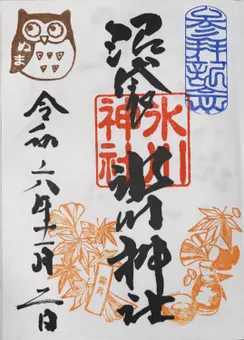 沼袋 氷川神社
氷川
神社
令和六年十一月二日
ぬま
霜月